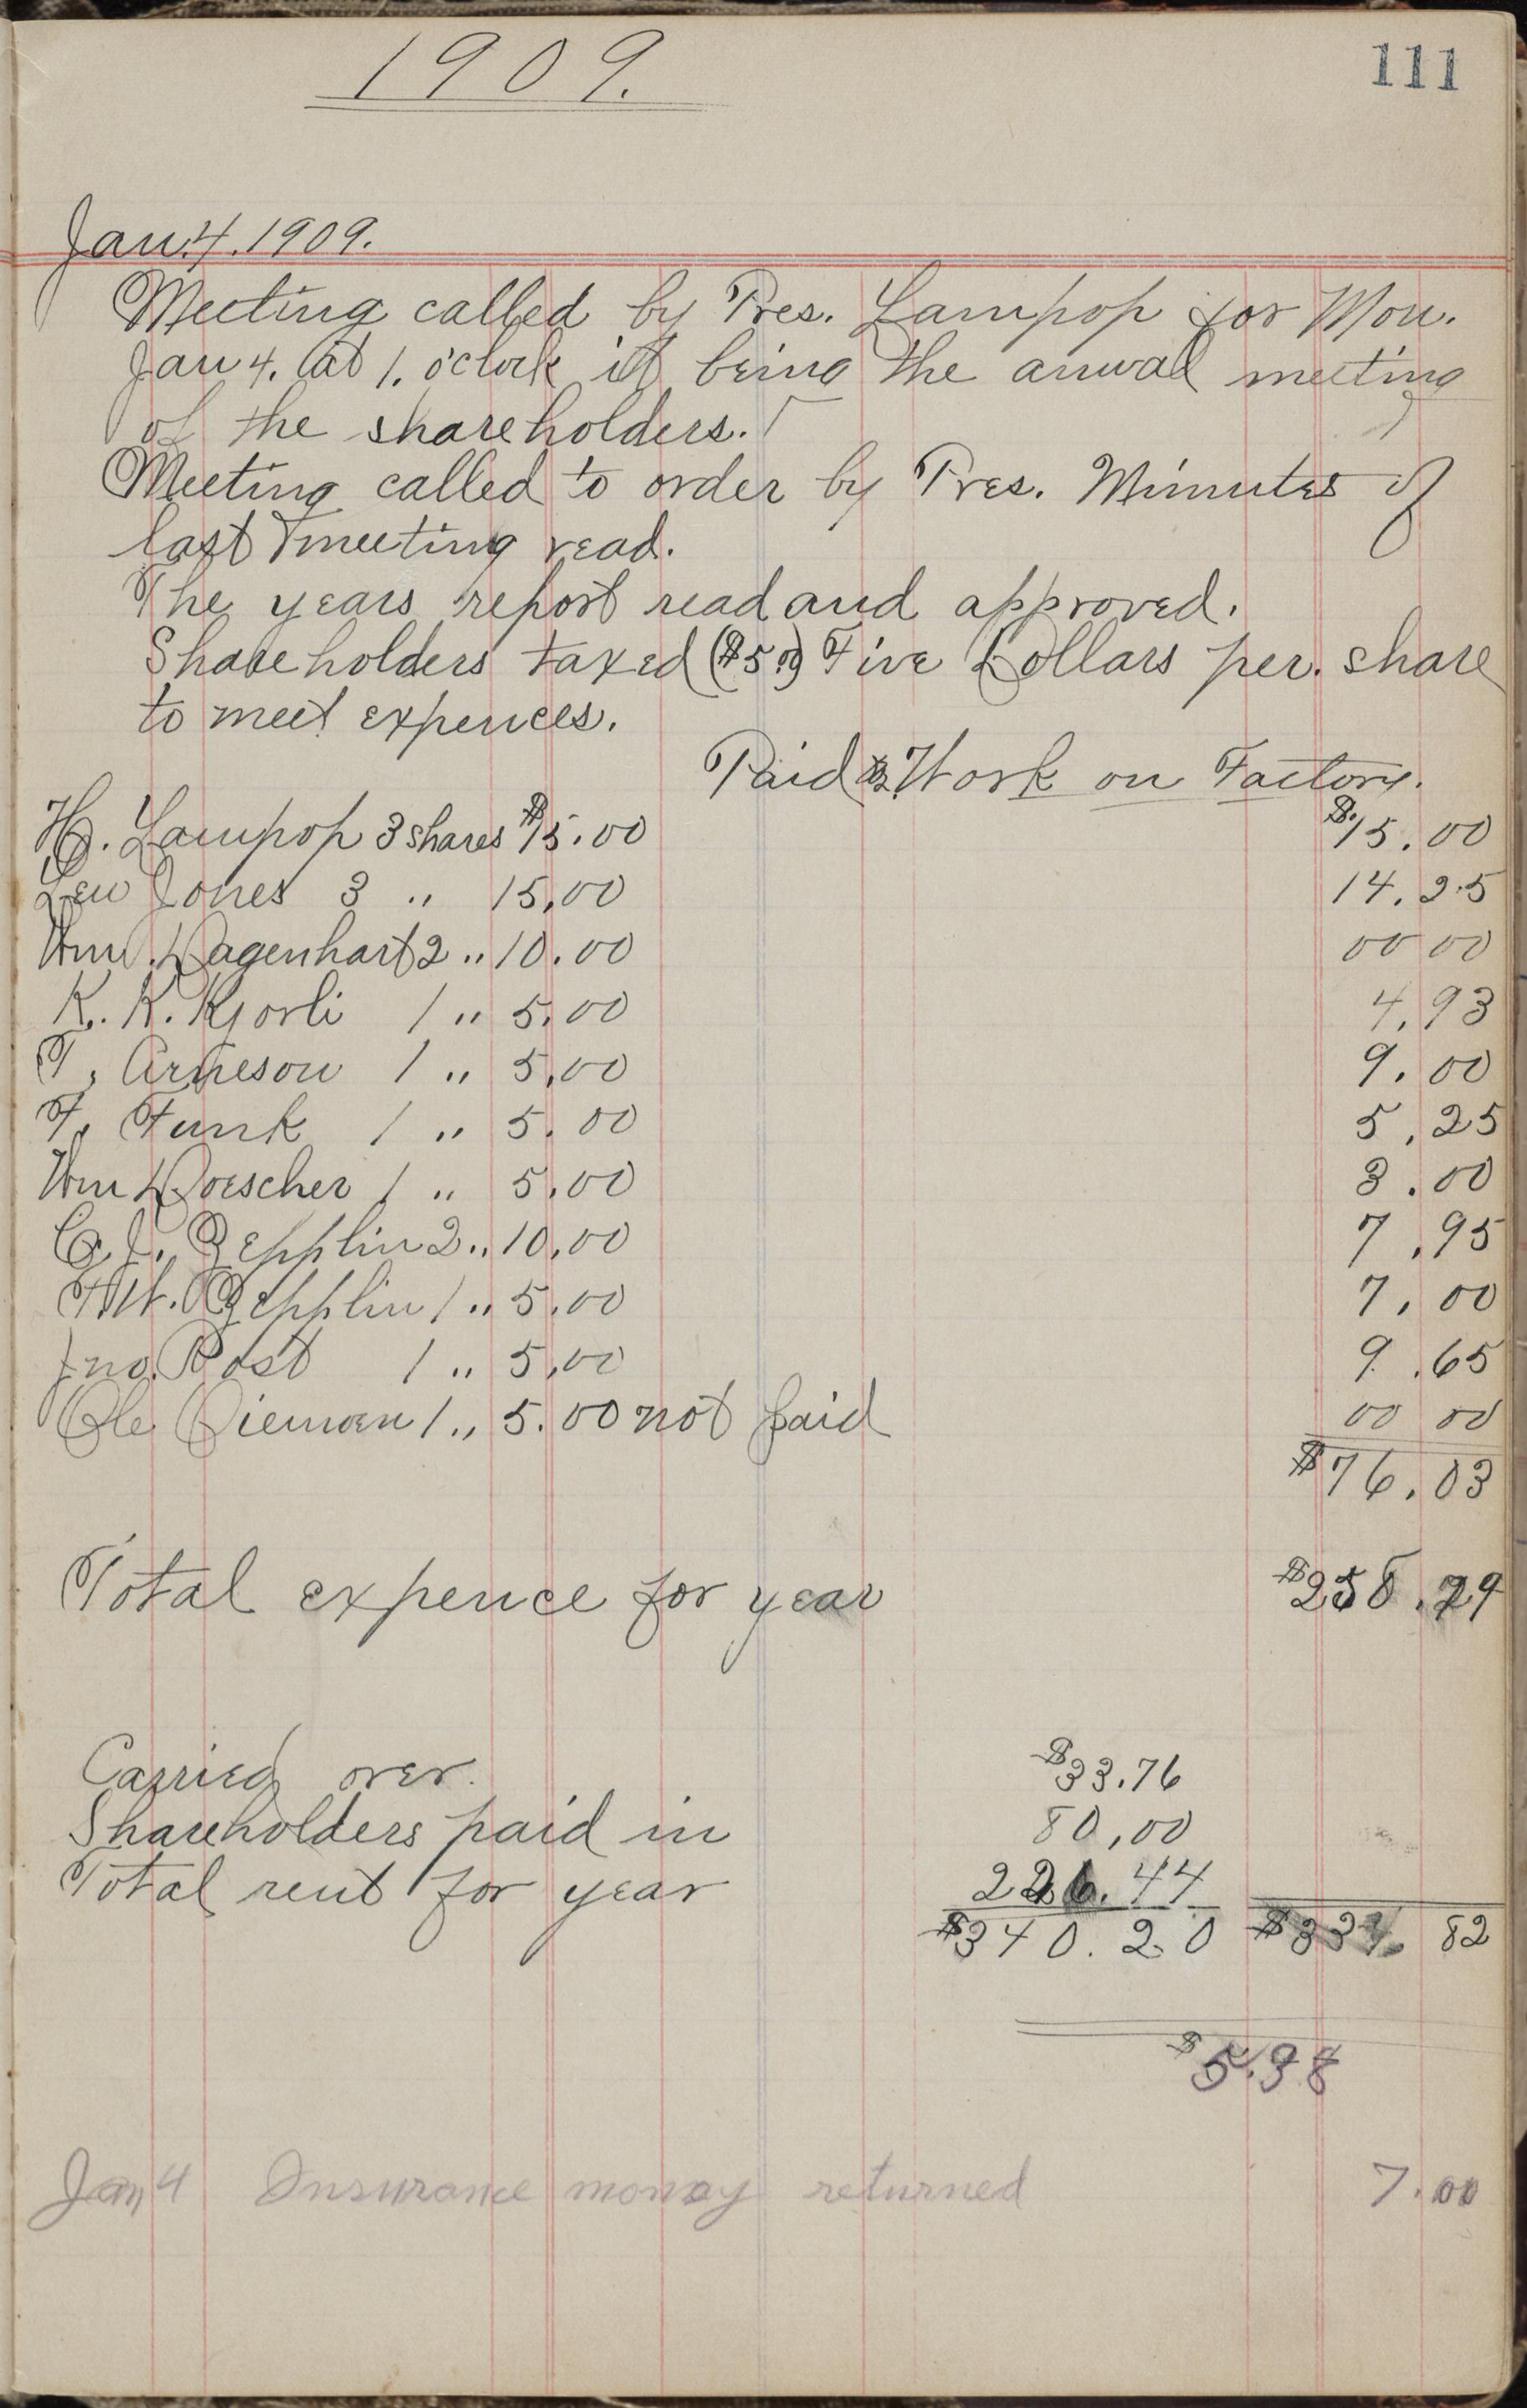 1909.
111
Jan. 4. 1909.
Meeting called by Pres. Lampop for Mon.
Jan 4. at 1. o'clock it being the anual meeting
of the shareholders.
Meeting called to order by Pres. Minutes of
last meeting read.
The years report read and approved.
Shareholders taxed ($5.00) Five Dollars per. share
to meet expences.
Paid Work on Factory.
H. Lampop 3 shares $15.00 $15.00
Lew Jones 3 " 15.00 14.25
Wm. Dagenhart 2 " 10.00 00 00
K. K. Kjorli 1 " 5.00 4.93
T. Arneson 1 " 5.00 9.00
F. Funk 1 " 5.00 5.25
Wm Doescher 1 " 5.00 3.00
C. J. Zepplin 2 " 10.00 7.95
F.W. Zepplin 1 " 5.00 7.00
Jno. Post 1 " 5.00 9.65
Ole 1 " 5.00 not paid 00 00
$76.03
Total expence for year $258.79
Carried over. $33.76
Shareholders paid in 80.00
Total rent for year 226.44
$340.20 $334.82
$5.38
Jan 4 Insurance money returned 7.00